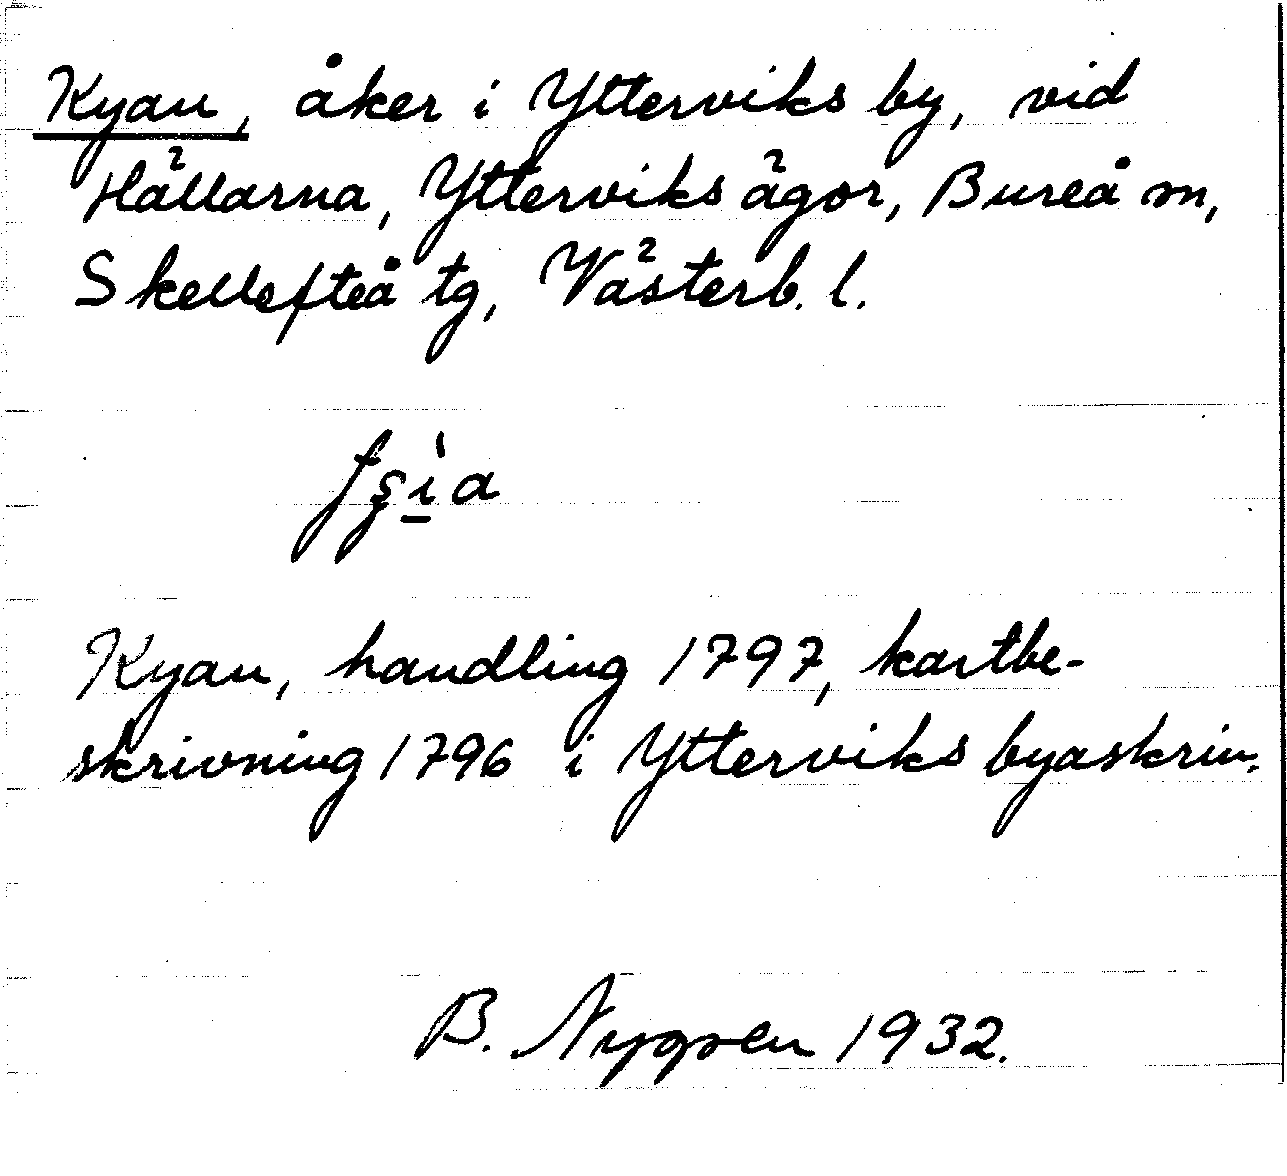 Kyan, åker i Ytterviks by, vid
Hällarna, Ytterviks ägor, Bureå sn,
Skellefteå tg, Västerb. l.
Kyan, handling 1797, kartbe-
skrivning 1796 i Ytterviks byaskrin.
B. Nygren 1932.